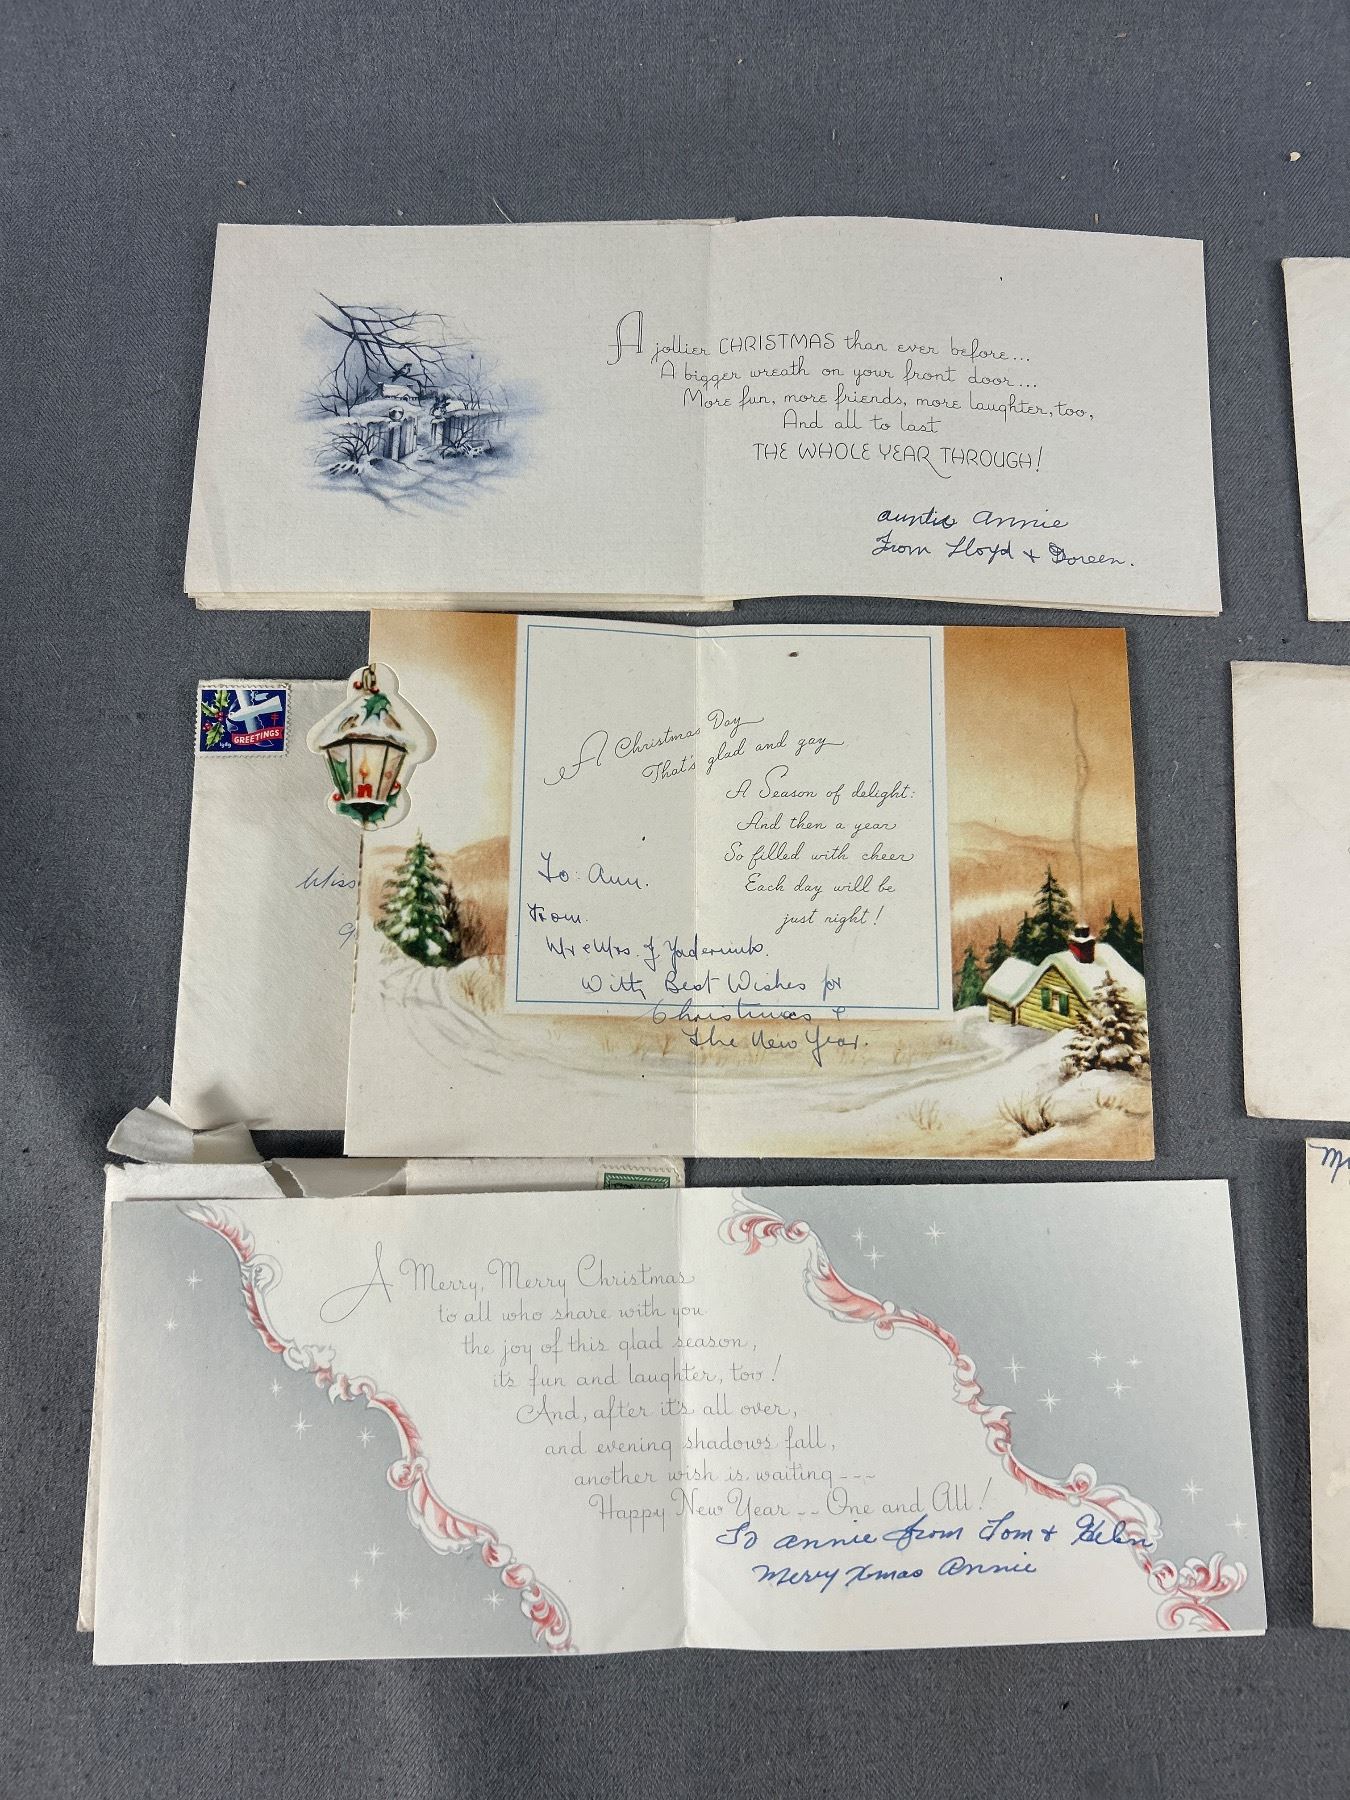 A jollier CHRISTMAS than ever before...
A bigger wreath on your front door...
More fun, more friends, more laughter, too,
And all to last
THE WHOLE YEAR THROUGH!
auntie annie
From Lloyd & Doreen.
GREETINGS
1949
Miss
A Christmas Day
That's glad and gay
A Season of delight:
And then a year
So filled with cheer
Each day will be
just right!
To: Ann.
From.
Mr & Mrs. J.
With Best Wishes for
Christmas &
The New Year.
A Merry, Merry Christmas
to all who share with you
the joy of this glad season,
it's fun and laughter, too!
And, after it's all over,
and evening shadows fall,
another wish is waiting---
Happy New Year -- One and All!
To annie from Tom & Helen
Merry Xmas Annie